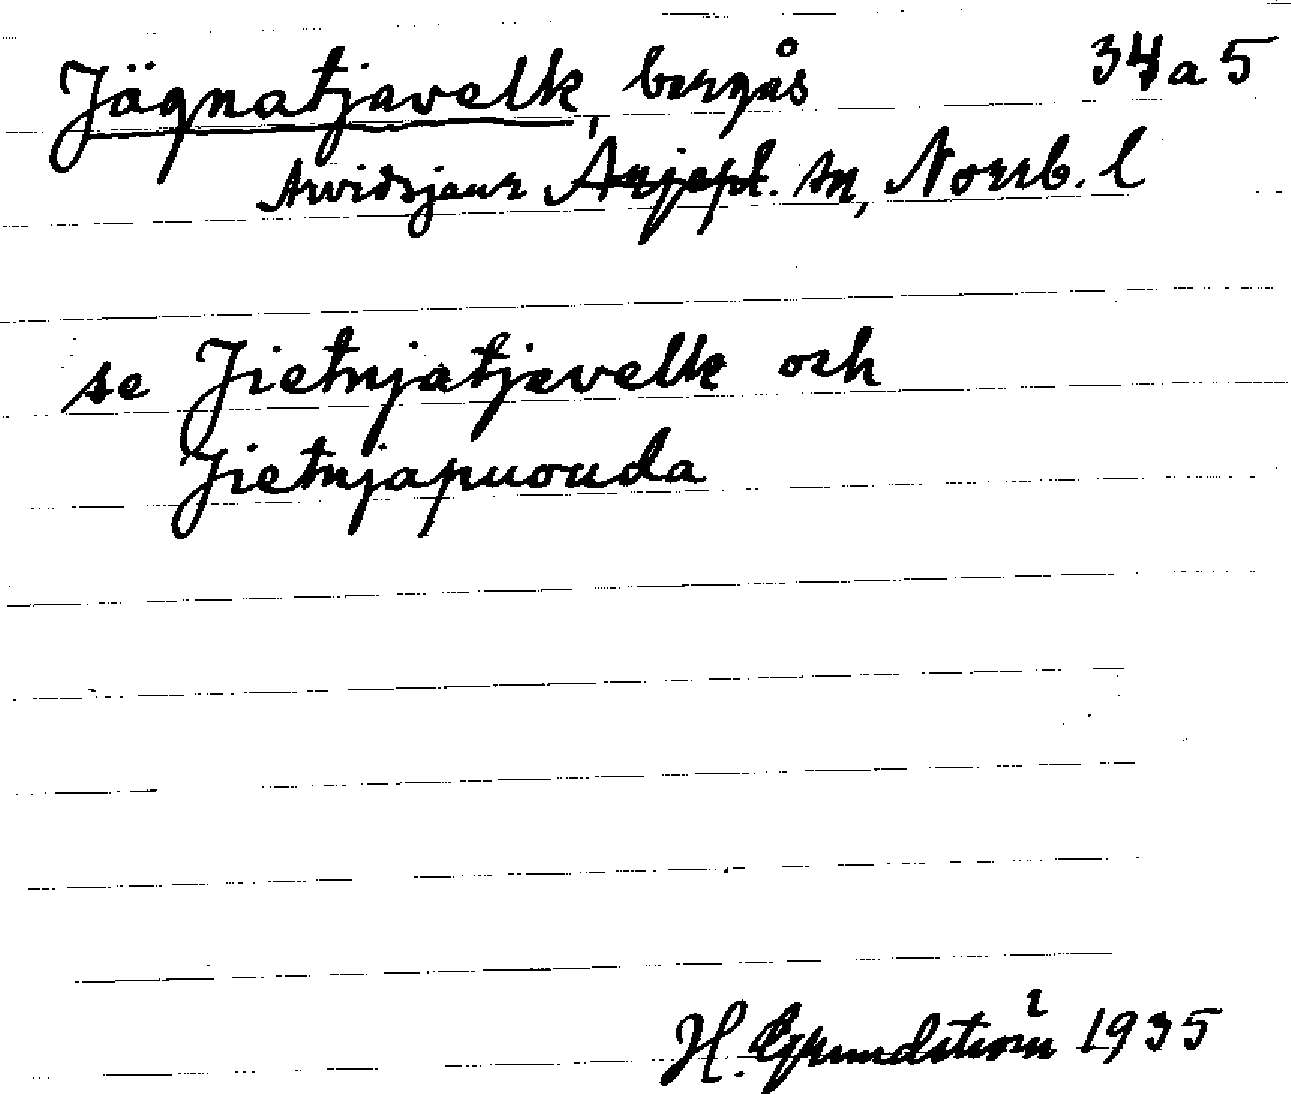 Jägnatjavelk, bergås 34a5
Arvidsjaur Arjepl. sn, Norrb. l
se Jietnjatjavelk och
Jietnjapuouda
H. Grundström 1935